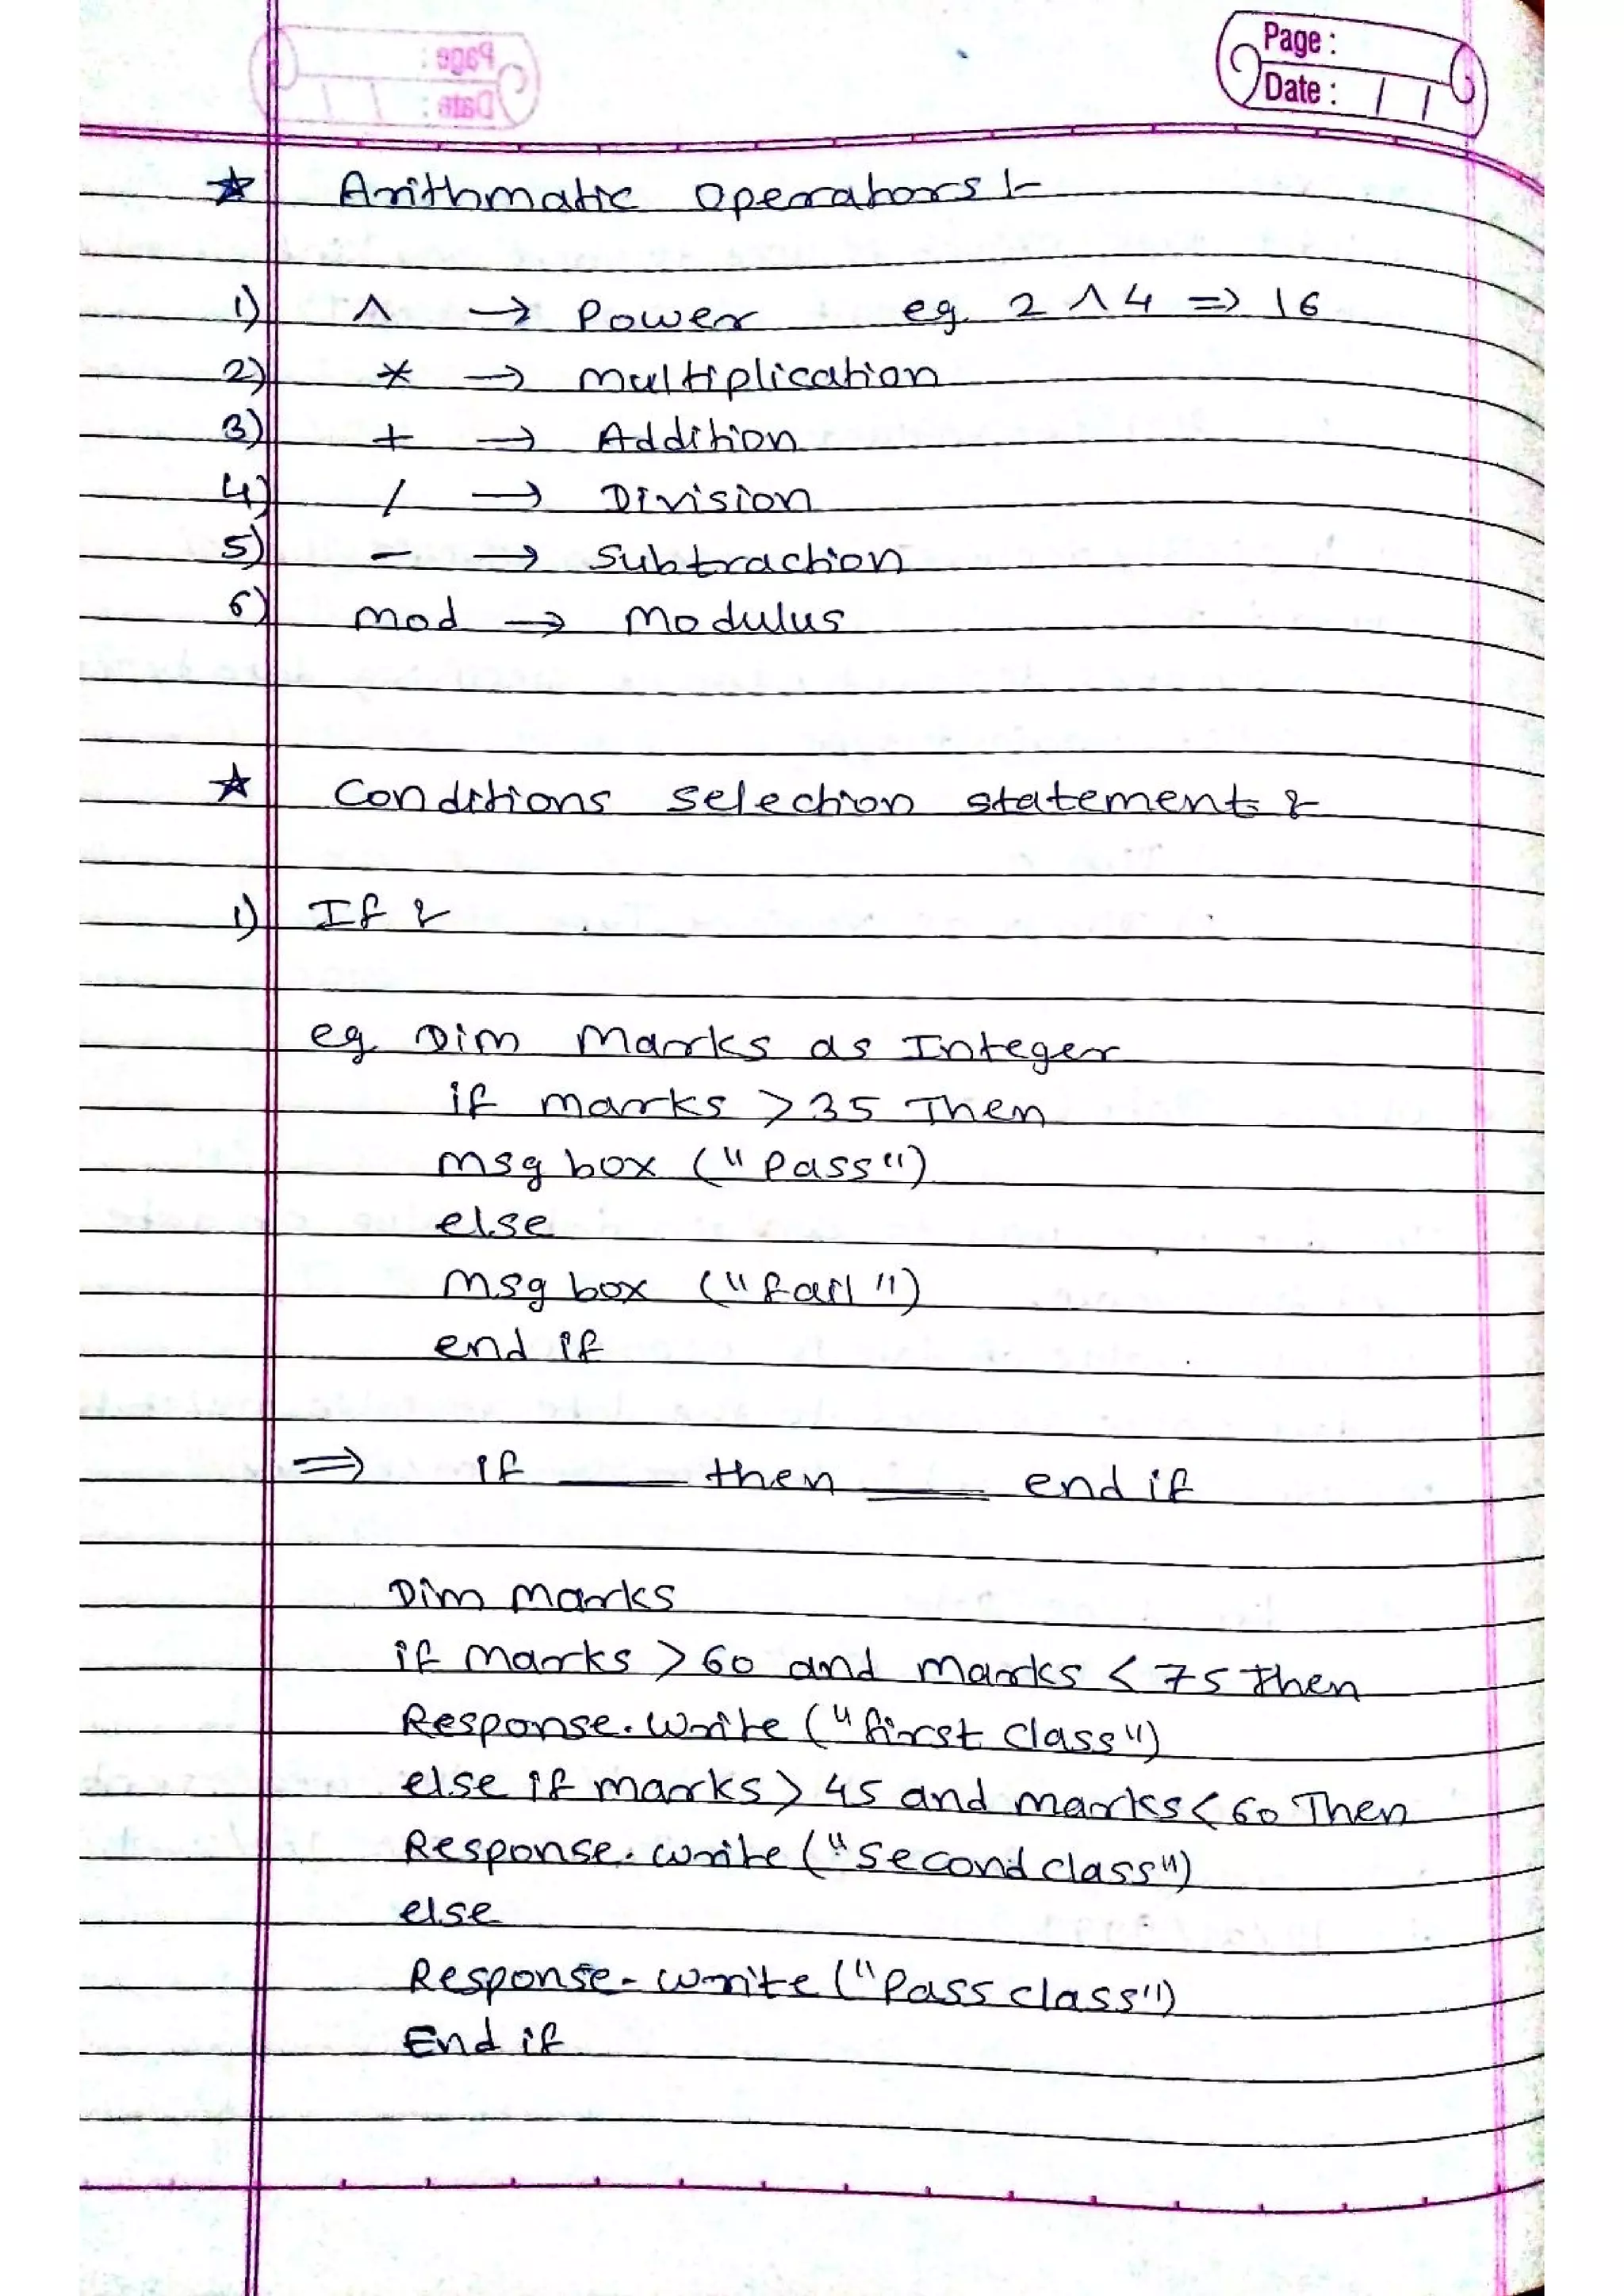 Page :
Date : / /
★ Arithmatic operators :-
1) ^ → Power eg. 2 ^ 4 => 16
2) * → multiplication
3) + → Addition
4) / → Division
5) - → Subtraction
6) mod → Modulus
★ Conditions selection statements :-
1) If :-
eg. Dim Marks as Integer
if marks > 35 Then
msg box ("Pass")
else
msg box ("fail")
end if
⇒ if ___ then ___ end if
Dim marks
if marks > 60 and marks < 75 then
Response.write ("first class")
else if marks > 45 and marks < 60 Then
Response.write ("second class")
else
Response.write ("Pass class")
End if